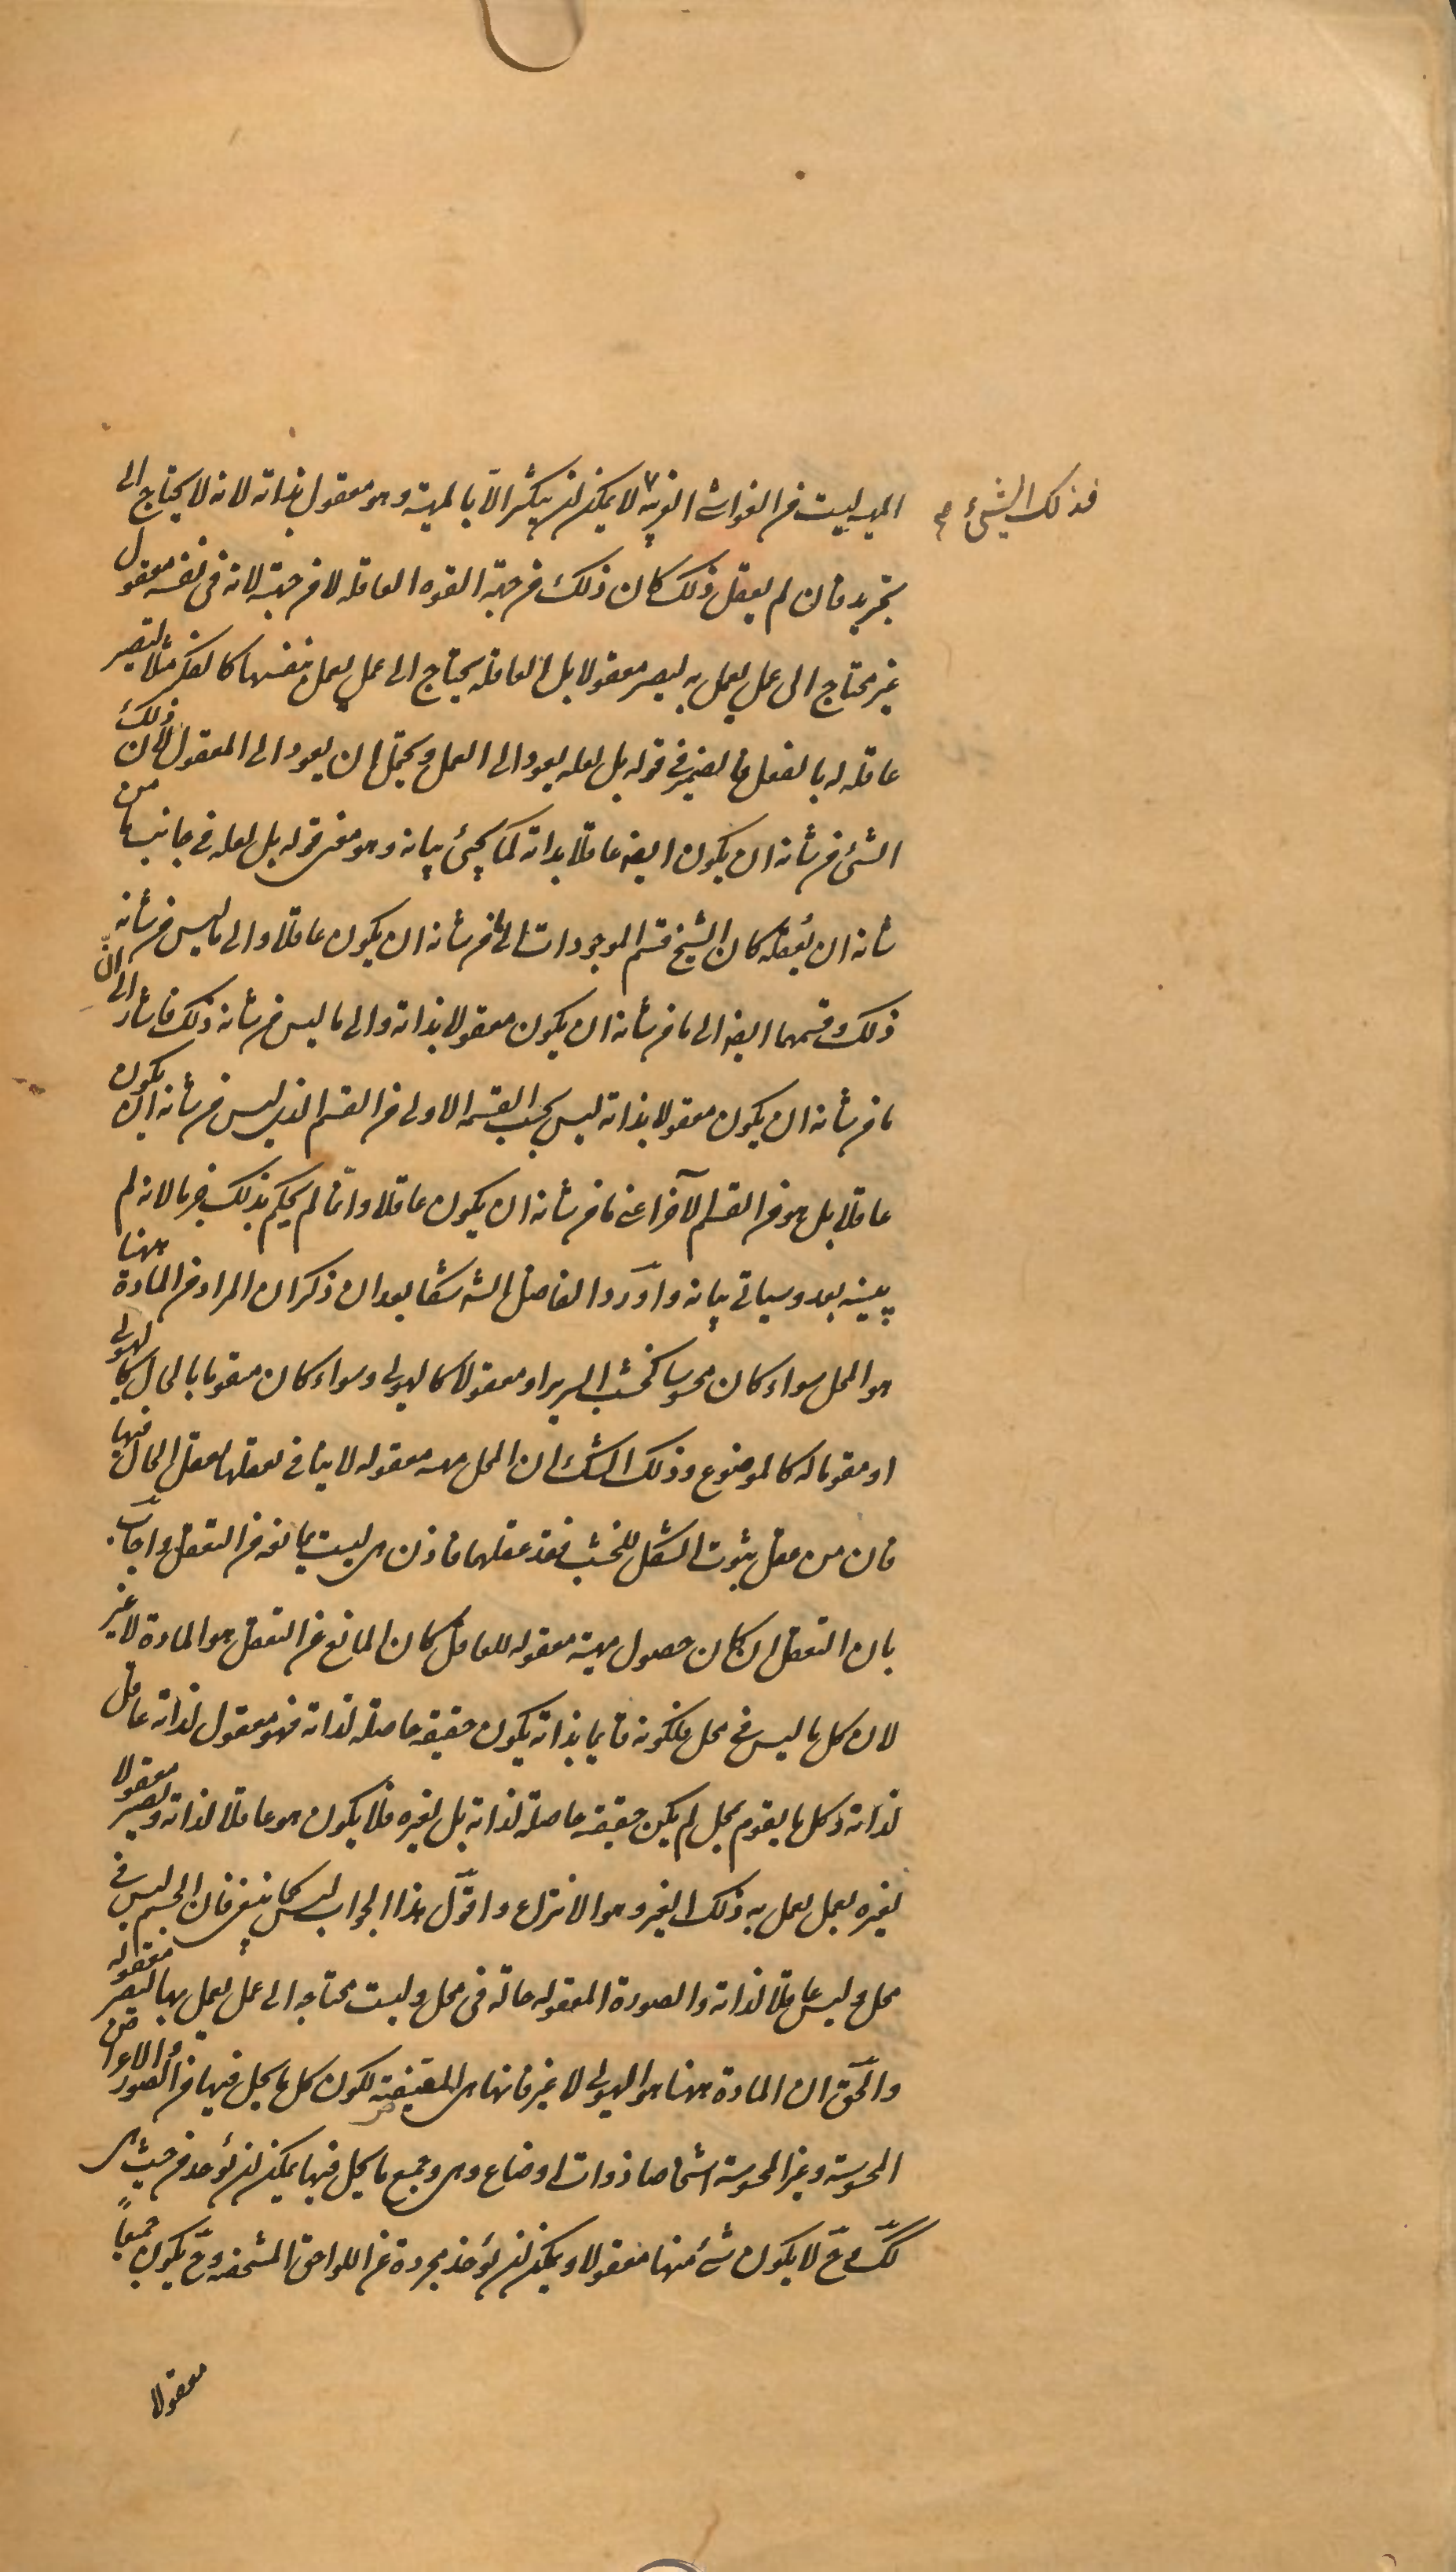 فذلك الشئ صح
المهيه ليست من الغواشى الغريبه لا يمكن ان يتكثر الا بالمهية وهو معقول بذاته لانه لا يحتاج الى
تجريد فان لم يعقل ذلك كان ذلك من جهة القوه العاقله لا من جهته لانه فى نفسه معقول
غير محتاج الى عمل يعمل به ليصير معقولا بل العاقله يحتاج الى عمل يعمل بنفسها كالفكر مثلا لتصير
عاقله له بالفعل فالضمير فى قوله بل لعله يعود الى العمل ويحتمل ان يعود الى المعقول لان ذلك
الشئ من شانه ان يكون ايضا عاقلا بذاته كما يجئ بيانه وهو معنى قوله بل لعله فى جانب ما من
شانه ان يعقله كان الشيخ قسم الموجودات الى ما من شانه ان يكون عاقلا والى ما ليس من شانه
ذلك وقسمها ايضا الى ما من شانه ان يكون معقولا بذاته والى ما ليس من شانه ذلك فاشار الى ان
ما من شانه ان يكون معقولا بذاته ليس بحسب القسمه الاولى من القسم الذى ليس من شانه ان يكون
عاقلا بل هو من القسم الآخر اعنى ما من شانه ان يكون عاقلا وانما لم يحكم بذلك جزما لانه لم
يبينه بعد وسياتى بيانه واورد الفاضل الشه شكا بعد ان ذكر ان المراد من المادة ههنا
هو المحل سواء كان محسوسا كخشب السرير او معقولا كالهيولى وسواء كان متقوما بالحال كالهيولى
او مقوما له كالموضوع وذلك الشك ان المحل مهيه معقوله لا ينافى تعقلها تعقل الحال فيها
فان من عقل ثبوت الشكل للخشب فقد عقلهما فاذن هى ليست بمانعه من التعقل واجاب
بان التعقل ان كان حصول مهية معقوله للعاقل كان المانع عن التعقل هو المادة لا غير
لان كل ما ليس فى محل فلكونه قايما بذاته يكون حقيقه حاصله لذاته فهو معقول لذاته عاقل
لذاته وكل ما يقوم بمحل لم يكن حقيقه حاصلة لذاته بل لغيره فلا يكون هو عاقلا لذاته ويصير معقولا
لغيره بعمل يعمل به ذلك الغير وهو الانتزاع واقول هذا الجواب ليس كما ينبغى فان الجسم ليس فى
محل وليس عاقلا لذاته والصورة المعقوله حاله فى محل وليست محتاجه الى عمل يعمل بها لتصير معقوله
والحق ان المادة ههنا هو الهيولى لا غير فانها هى المقتضية لكون كل ما يحل فيها من الصور والاعراض
المحسوسة وغير المحسوسة اشخاصا ذوات اوضاع وهى وجميع ما يحل فيها يمكن ان يؤخذ من حيث هى
كك وح لا يكون شئ منها معقولا ويمكن ان يؤخذ مجردة عن اللواحق المشخصه وح يكون جميعا
معقولا